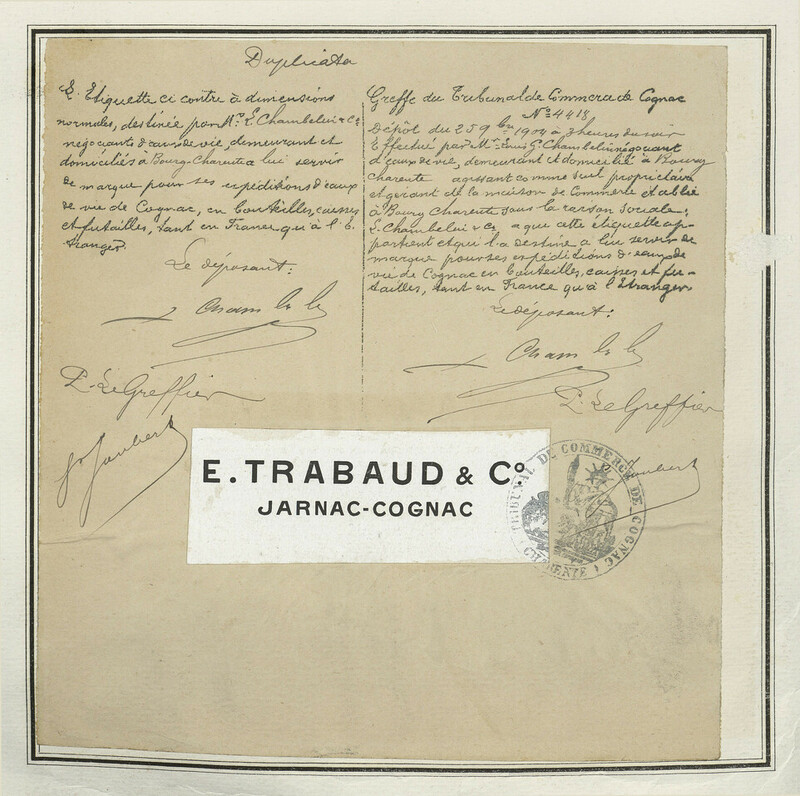 Duplicata
L'Etiquette ci contre à dimensions
normales, destinée par Mr. L. Chambelui & Co
négociants d'eaux de vie, demeurant et
domiciliés à Bourg-Charente a lui servir
de marque pour ses expéditions d'eaux
de vie de Cognac, en bouteilles, caisses
et futailles, tant en France qu'à l'E
tranger
Le déposant:
P. Le Greffier
Joubert
Greffe du Tribunal de Commerce de Cognac
No 4418
Dépôt du 25 9bre 1904 à 3 heures du soir
Effectué par Mr Louis G. Chambelui négociant
d'eaux de vie, demeurant et domicilié à Bourg
Charente agissant comme seul propriétaire
et gérant de la maison de Commerce établie
à Bourg Charente sous la raison sociale;
L. Chambelui & Co a que cette étiquette ap-
partient et qui l'a destine a lui servir de
marque pour ses expéditions d'eaux de
vie de Cognac en bouteilles, caisses et fu-
tailles, tant en France qu'à l'Etranger
Le déposant:
P. Le Greffier
Joubert
E. TRABAUD & Co.
JARNAC-COGNAC
TRIBUNAL DE COMMERCE DE COGNAC
CHARENTE